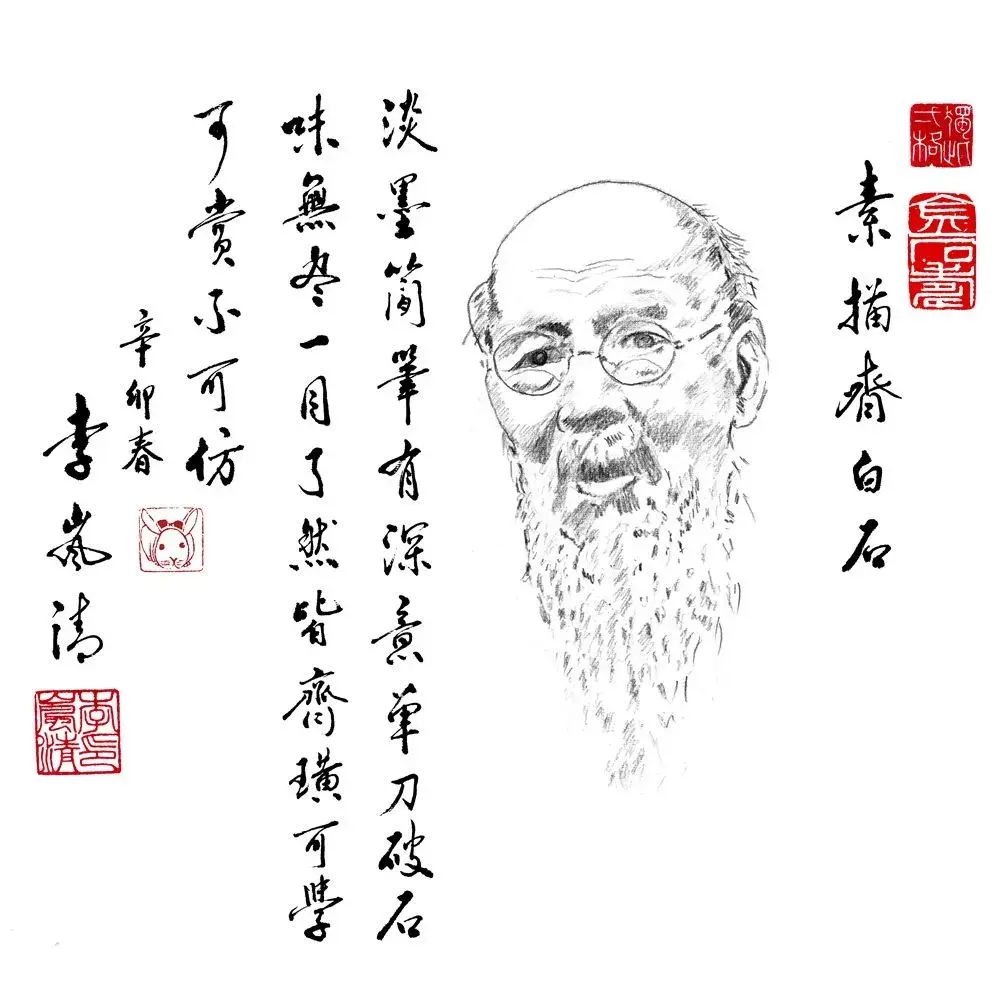 素描齊白石
淡墨簡筆有深意單刀破石
味無尽一目了然皆齊璜可學
可賞不可仿
辛卯春
李嵐清